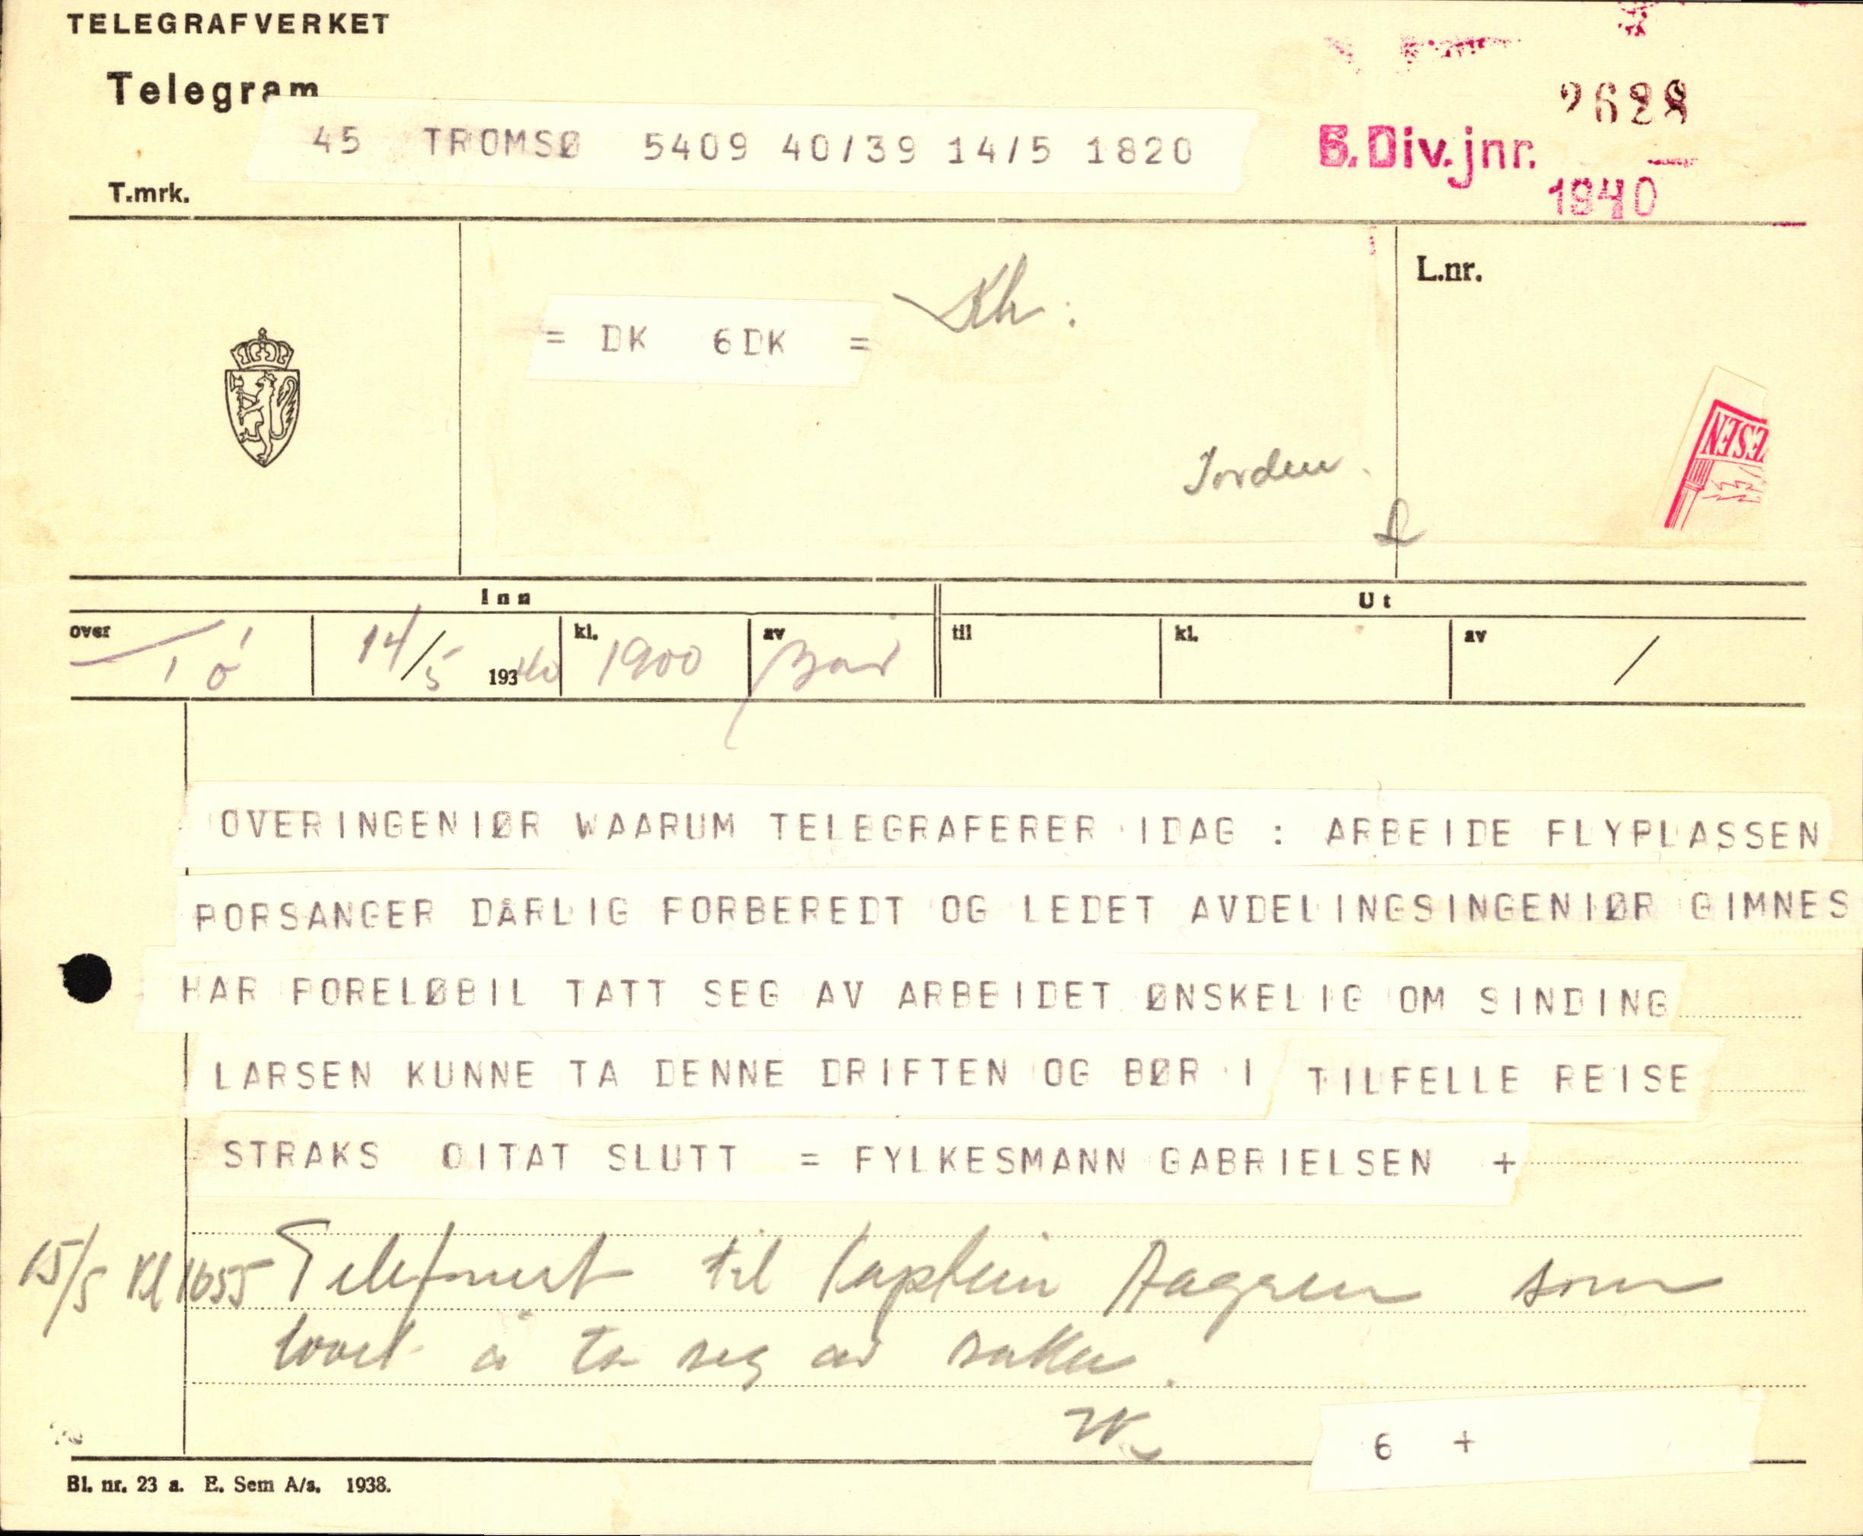 TELEGRAFVERKET
Telegram
45 TROMSØ 5409 40/39 14/5 1820
2628
6. Div. jnr.
1940
T.mrk.
L.nr.
= DK 6DK =
Jorden.
ESEN
Inn
Ut
over Tø 14/5 19340 kl. 1900 av
til kl. av /
OVERINGENIØR WAARUM TELEGRAFERER IDAG : ARBEIDE FLYPLASSEN
PORSANGER DÅRLIG FORBEREDT OG LEDET AVDELINGSINGENIØR GIMNES
HAR FORELØBIL TATT SEG AV ARBEIDET ØNSKELIG OM SINDING
LARSEN KUNNE TA DENNE DRIFTEN OG BØR I TILFELLE REISE
STRAKS CITAT SLUTT = FYLKESMANN GABRIELSEN +
15/5 Kl 1655 Telefonert til kaptein Aagren som
lovet å ta seg av saken.
6 +
Bl. nr. 23 a. E. Sem A/s. 1938.